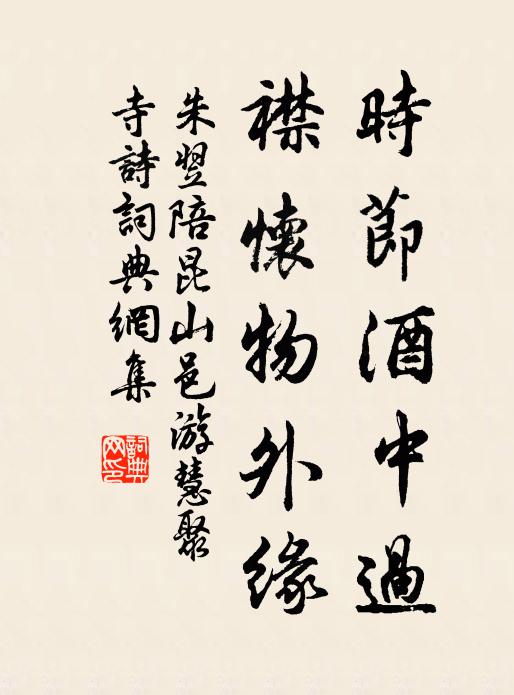 時節酒中過
襟懷物外緣
朱翌陪昆山邑游慧聚
寺詩詞典網集
詞典网印